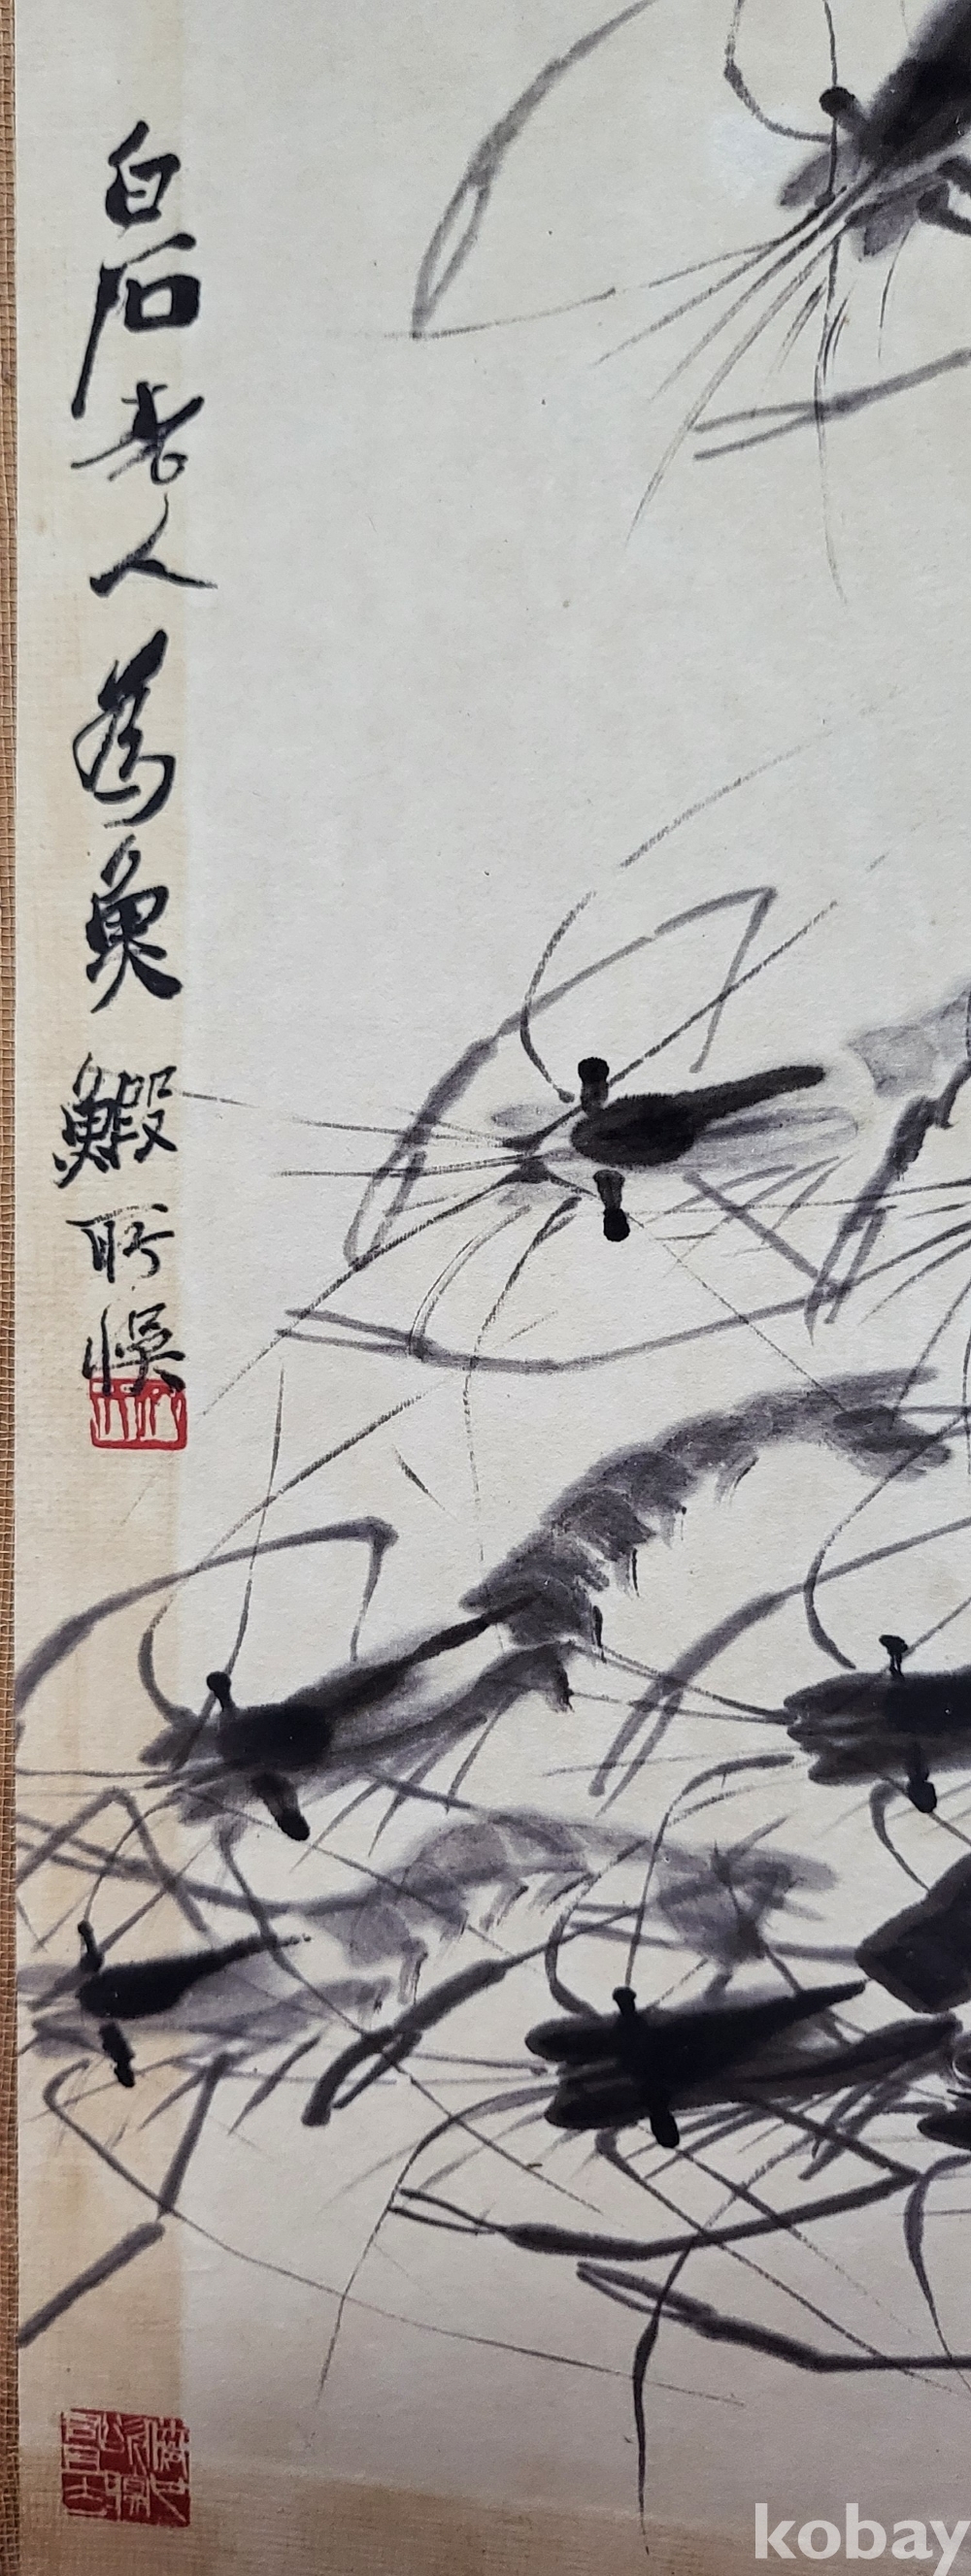 白石老人為魚鰕所悞
kobay